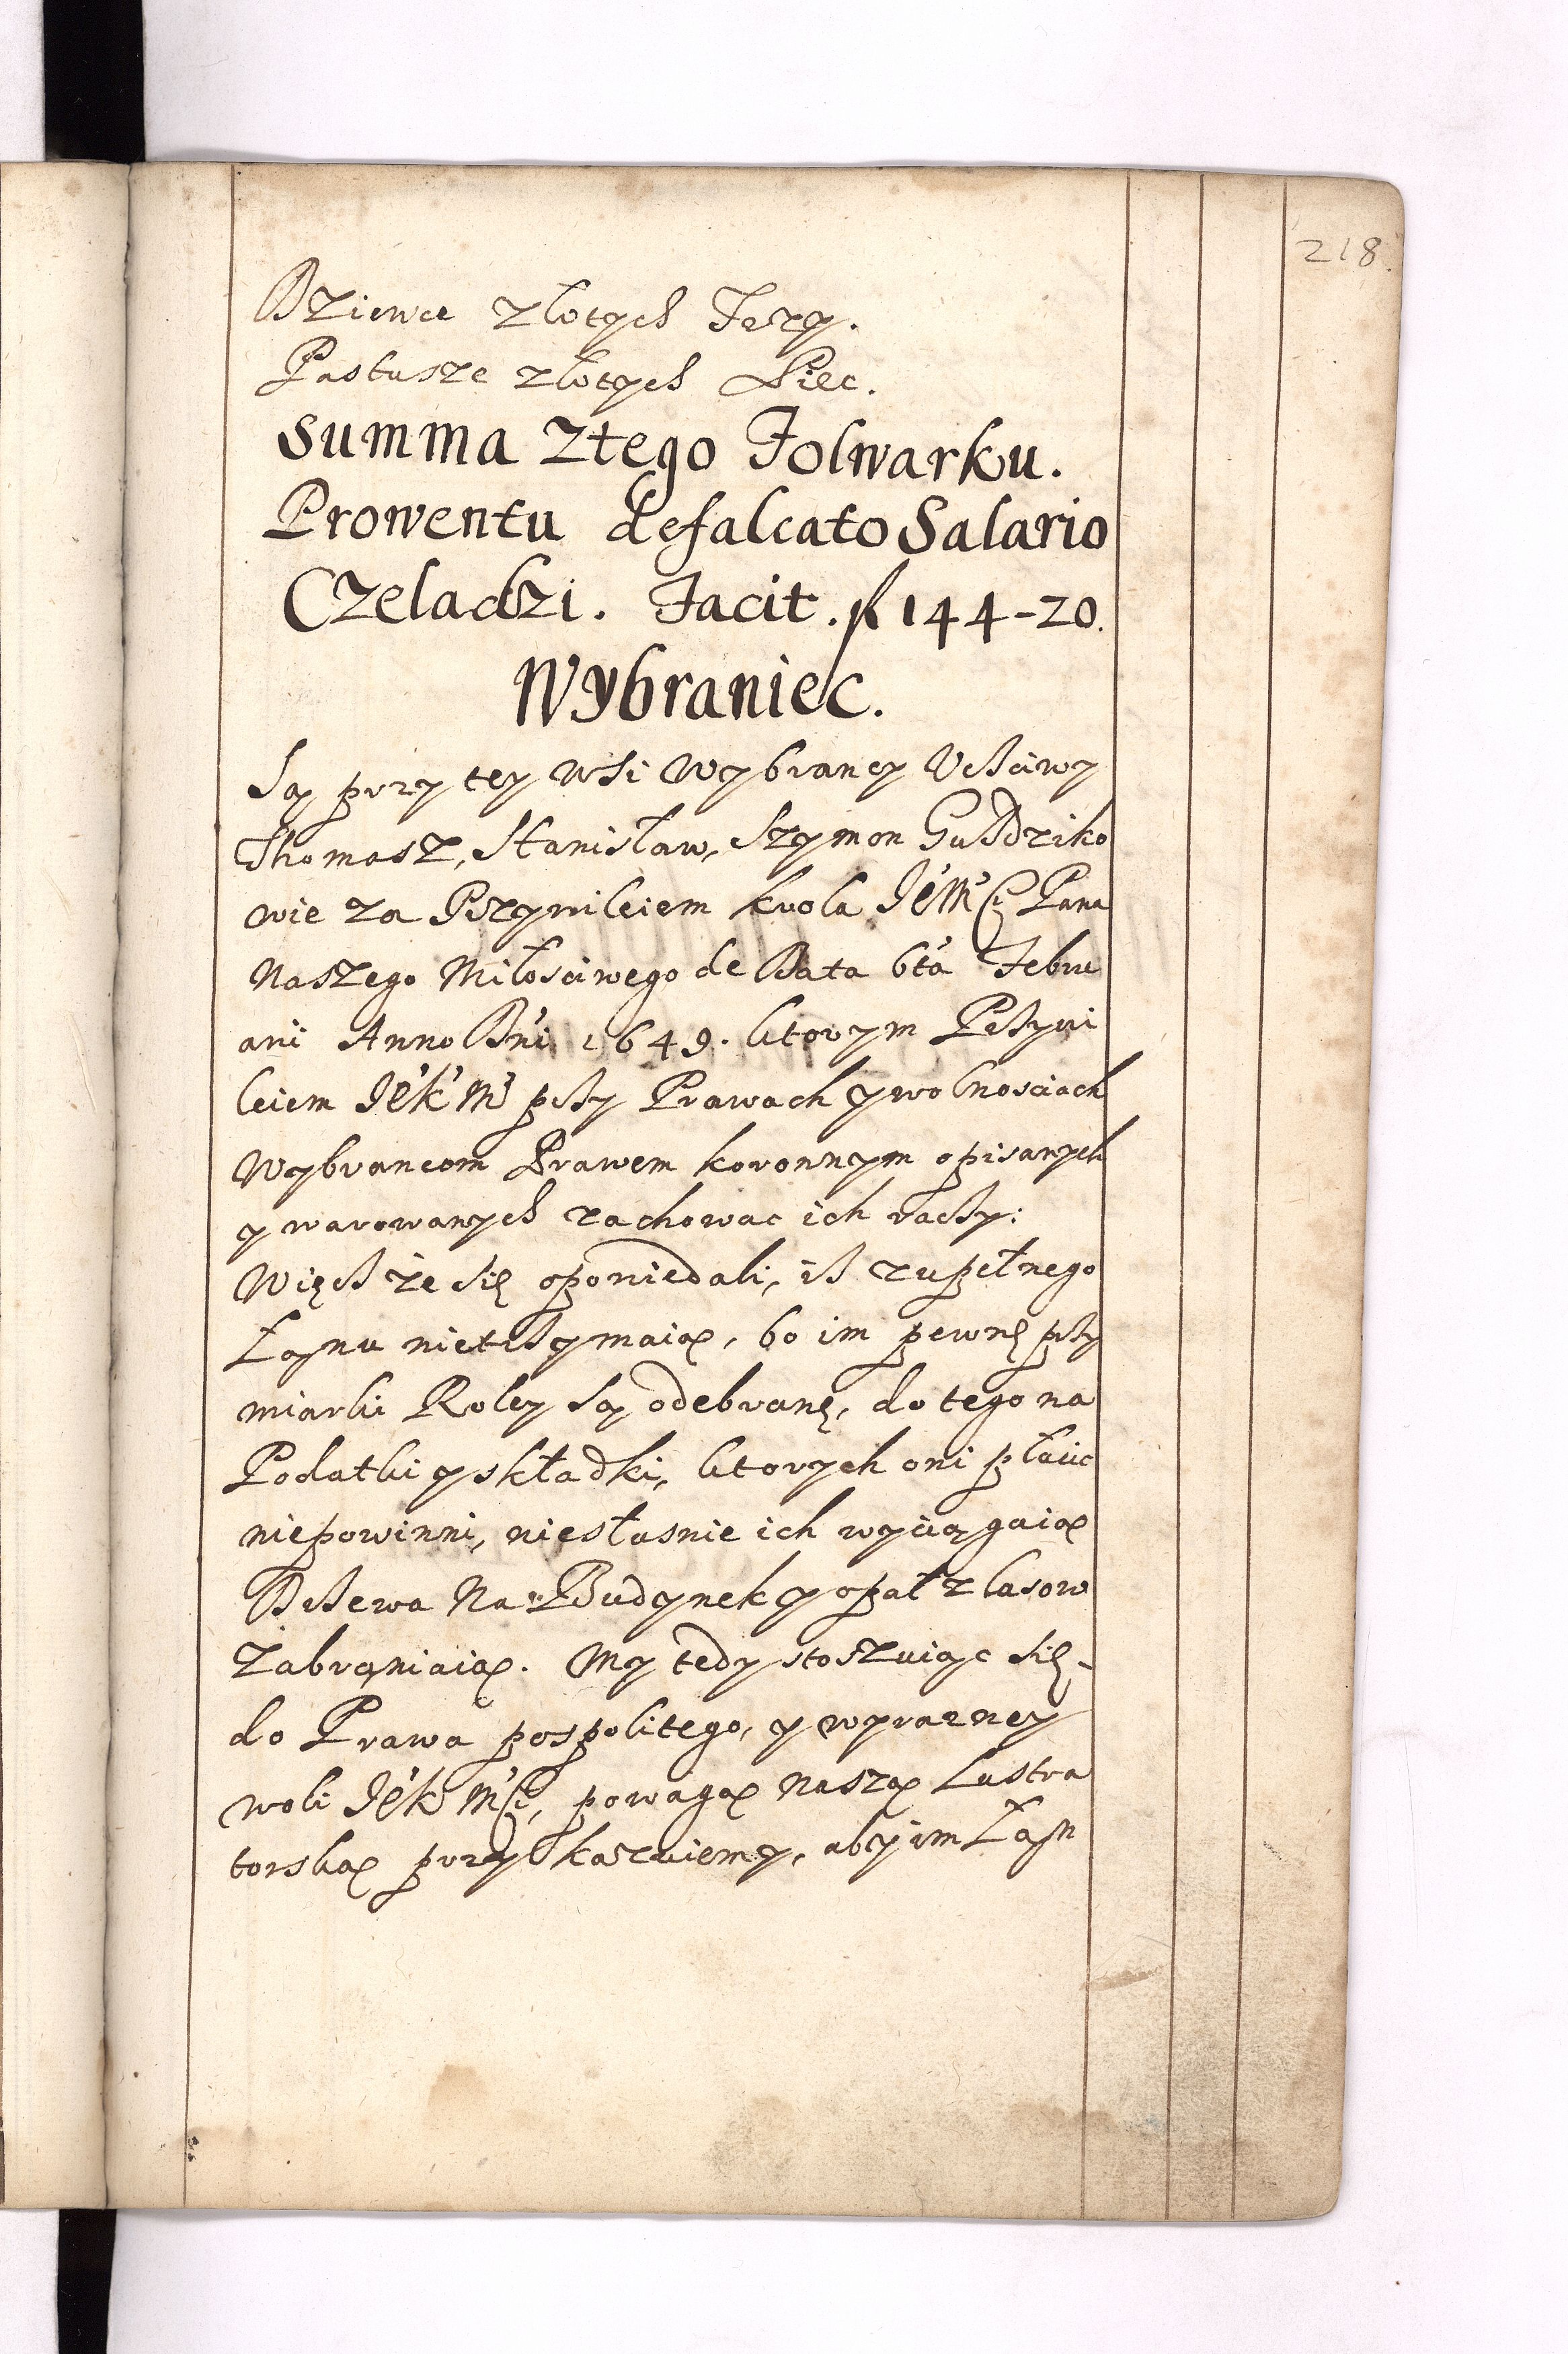 218.
Dziewce złotych Trzy.
Pastusze złotych Piec.
Summa Ztego Folwarku.
Prowentu defalcato Salario
Czeladzi. Facit. fl 144-20.
Wybraniec.
Są przy tey wsi Wybrancy Ucżciwy
Thomasz, Stanisław, Szymon Guździko
wie za Przywileiem krola Je͛Mͨści Pana
Naszego Miłosciwego de Data 6ta Febru
arii Anno Dn̕i 1649. ktorym Pżywi
leiem Je͛k͛M͛ pży Prawach y wolnosciach
Wybrancom Prawem koronnym opisanych
y warowanych zachowac ich raczy:
Więcż że się opowiedali, iż zupełnego
Łanu nietrżymaią, bo im pewnę pży
miarki Roley są odebranę, do tego na
Podatki y składki, ktorych oni płacic
niepowinni, niesłusnie ich wyciągaią
Drżewa Na Budynek y opał z lasow
Zabraniaią. My tedy stoszuiąc się
do Prawa pospolitego, y wyrazney
woli Je͛k͛M͛ści, powagą naszą Lustra
torską przykazuiemy, aby im Łan